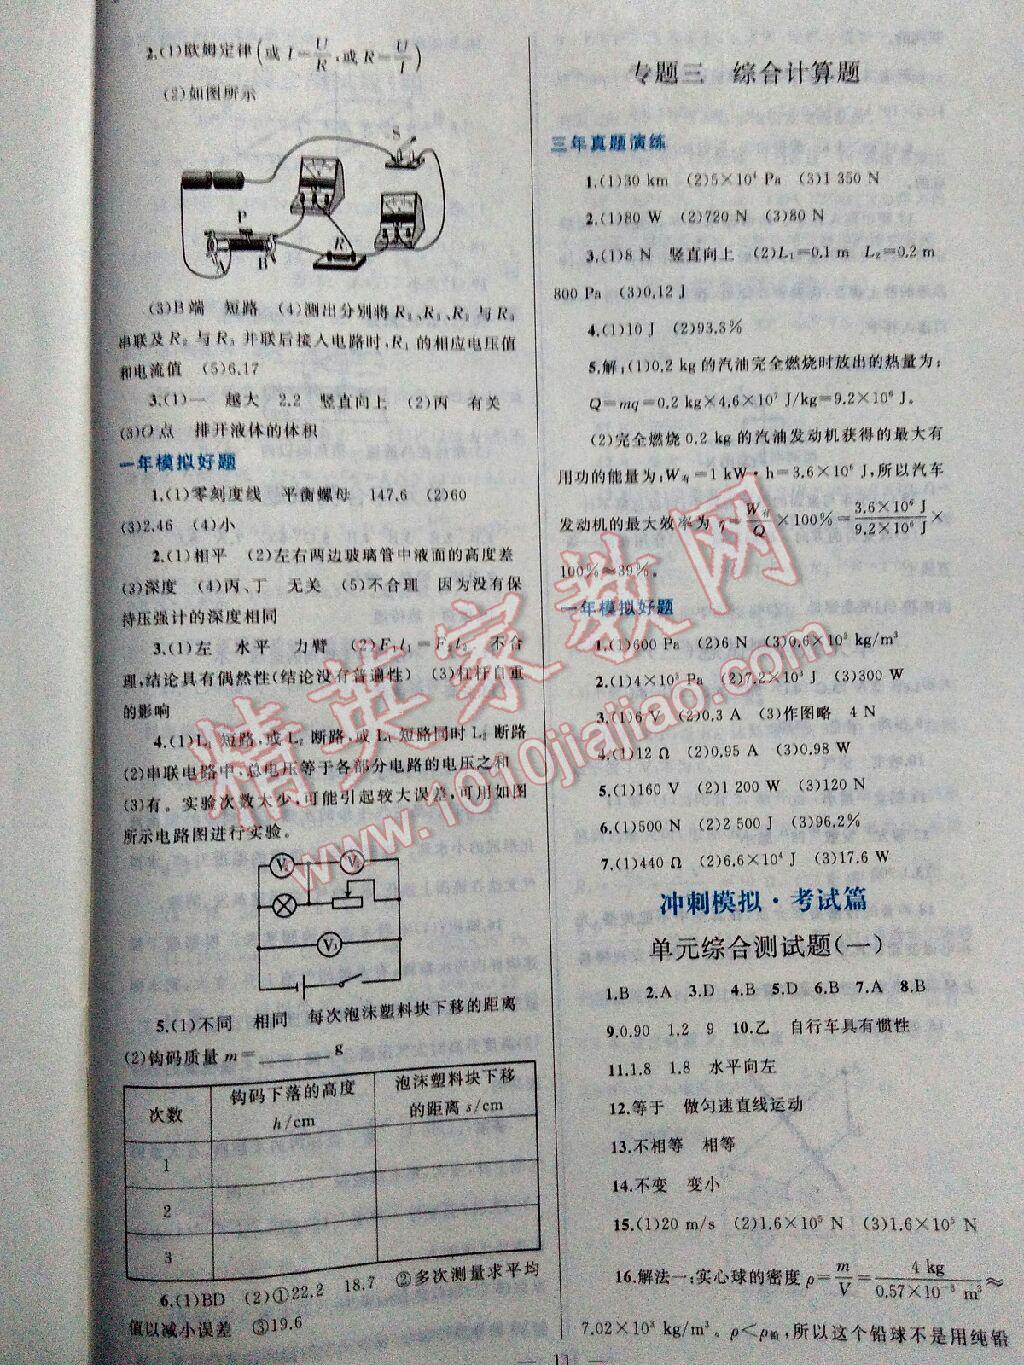 2.(1)欧姆定律(或 I=U/R,或 R=U/I)
(2)如图所示
S
P
A
B
R
(3)B端 短路 (4)测出分别将 R₂、R₁、R₁ 与 R₃
串联及 R₂ 与 R₃ 并联后接入电路时,R₁ 的相应电压值
和电流值 (5)6.17
3.(1)一 越大 2.2 竖直向上 (2)丙 有关
(3)O点 排开液体的体积
一年模拟好题
1.(1)零刻度线 平衡螺母 147.6 (2)60
(3)2.46 (4)小
2.(1)相平 (2)左右两边玻璃管中液面的高度差
(3)深度 (4)丙、丁 无关 (5)不合理 因为没有保
持压强计的深度相同
3.(1)左 水平 力臂 (2)F₁l₁=F₂l₂ 不合
理,结论具有偶然性(结论没有普遍性) (3)杠杆自重
的影响
4.(1)L₁ 短路,或L₂断路,或L₁短路同时L₂断路
(2)串联电路中,总电压等于各部分电路的电压之和
(3)有。实验次数太少,可能引起较大误差,可用如图
所示电路图进行实验。
V V
V₁
5.(1)不同 相同 每次泡沫塑料块下移的距离
(2)钩码质量 m=______g
次数 钩码下落的高度 h/cm 泡沫塑料块下移的距离 s/cm
1
2
3
6.(1)BD (2)①22.2 18.7 ②多次测量求平均
值以减小误差 ③19.6
专题三 综合计算题
三年真题演练
1.(1)30 km (2)5×10⁴ Pa (3)1 350 N
2.(1)80 W (2)720 N (3)80 N
3.(1)8 N 竖直向上 (2)L₁=0.1 m L₂=0.2 m
800 Pa (3)0.12 J
4.(1)10 J (2)93.3%
5.解:(1)0.2 kg的汽油完全燃烧时放出的热量为:
Q=mq=0.2 kg×4.6×10⁷ J/kg=9.2×10⁶ J。
(2)完全燃烧0.2 kg的汽油发动机获得的最大有
用功的能量为:W有=1 kW·h=3.6×10⁶ J,所以汽车
发动机的最大效率为 η=W有/Q×100%=3.6×10⁶ J/9.2×10⁶ J×
100%≈39%。
一年模拟好题
1.(1)600 Pa (2)6 N (3)0.6×10³ kg/m³
2.(1)4×10³ Pa (2)7.2×10³ J (3)300 W
3.(1)6 V (2)0.3 A (3)作图略 4 N
4.(1)12 Ω (2)0.95 A (3)0.98 W
5.(1)160 V (2)1 200 W (3)120 N
6.(1)500 N (2)2 500 J (3)96.2%
7.(1)440 Ω (2)6.6×10⁴ J (3)17.6 W
冲刺模拟·考试篇
单元综合测试题(一)
1.B 2.A 3.D 4.B 5.D 6.B 7.A 8.B
9.0.90 1.2 9 10.乙 自行车具有惯性
11.1.8 1.8 水平向左
12.等于 做匀速直线运动
13.不相等 相等
14.不变 变小
15.(1)20 m/s (2)1.6×10⁵ N (3)1.6×10⁵ N
16.解法一:实心球的密度 ρ=m/V=4 kg/0.57×10⁻³ m³≈
7.02×10³ kg/m³。ρ<ρ铅,所以这个铅球不是用纯铅
精英家教网
www.1010jiajiao.com